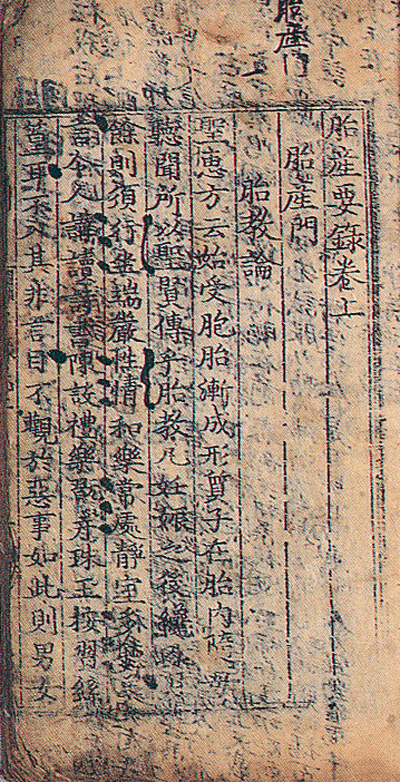 胎産門
胎産要錄卷上
胎産門
胎教論
聖惠方云始受胞胎漸成形質子在胎內隨母
聽聞所以聖賢傳乎胎教凡妊娠之後纔
餘則須行坐端嚴性情和樂常處靜室多聽美
言令人講讀詩書陳設禮樂翫弄珠玉按習絲
簧耳不入其非言目不觀於惡事如此則男女